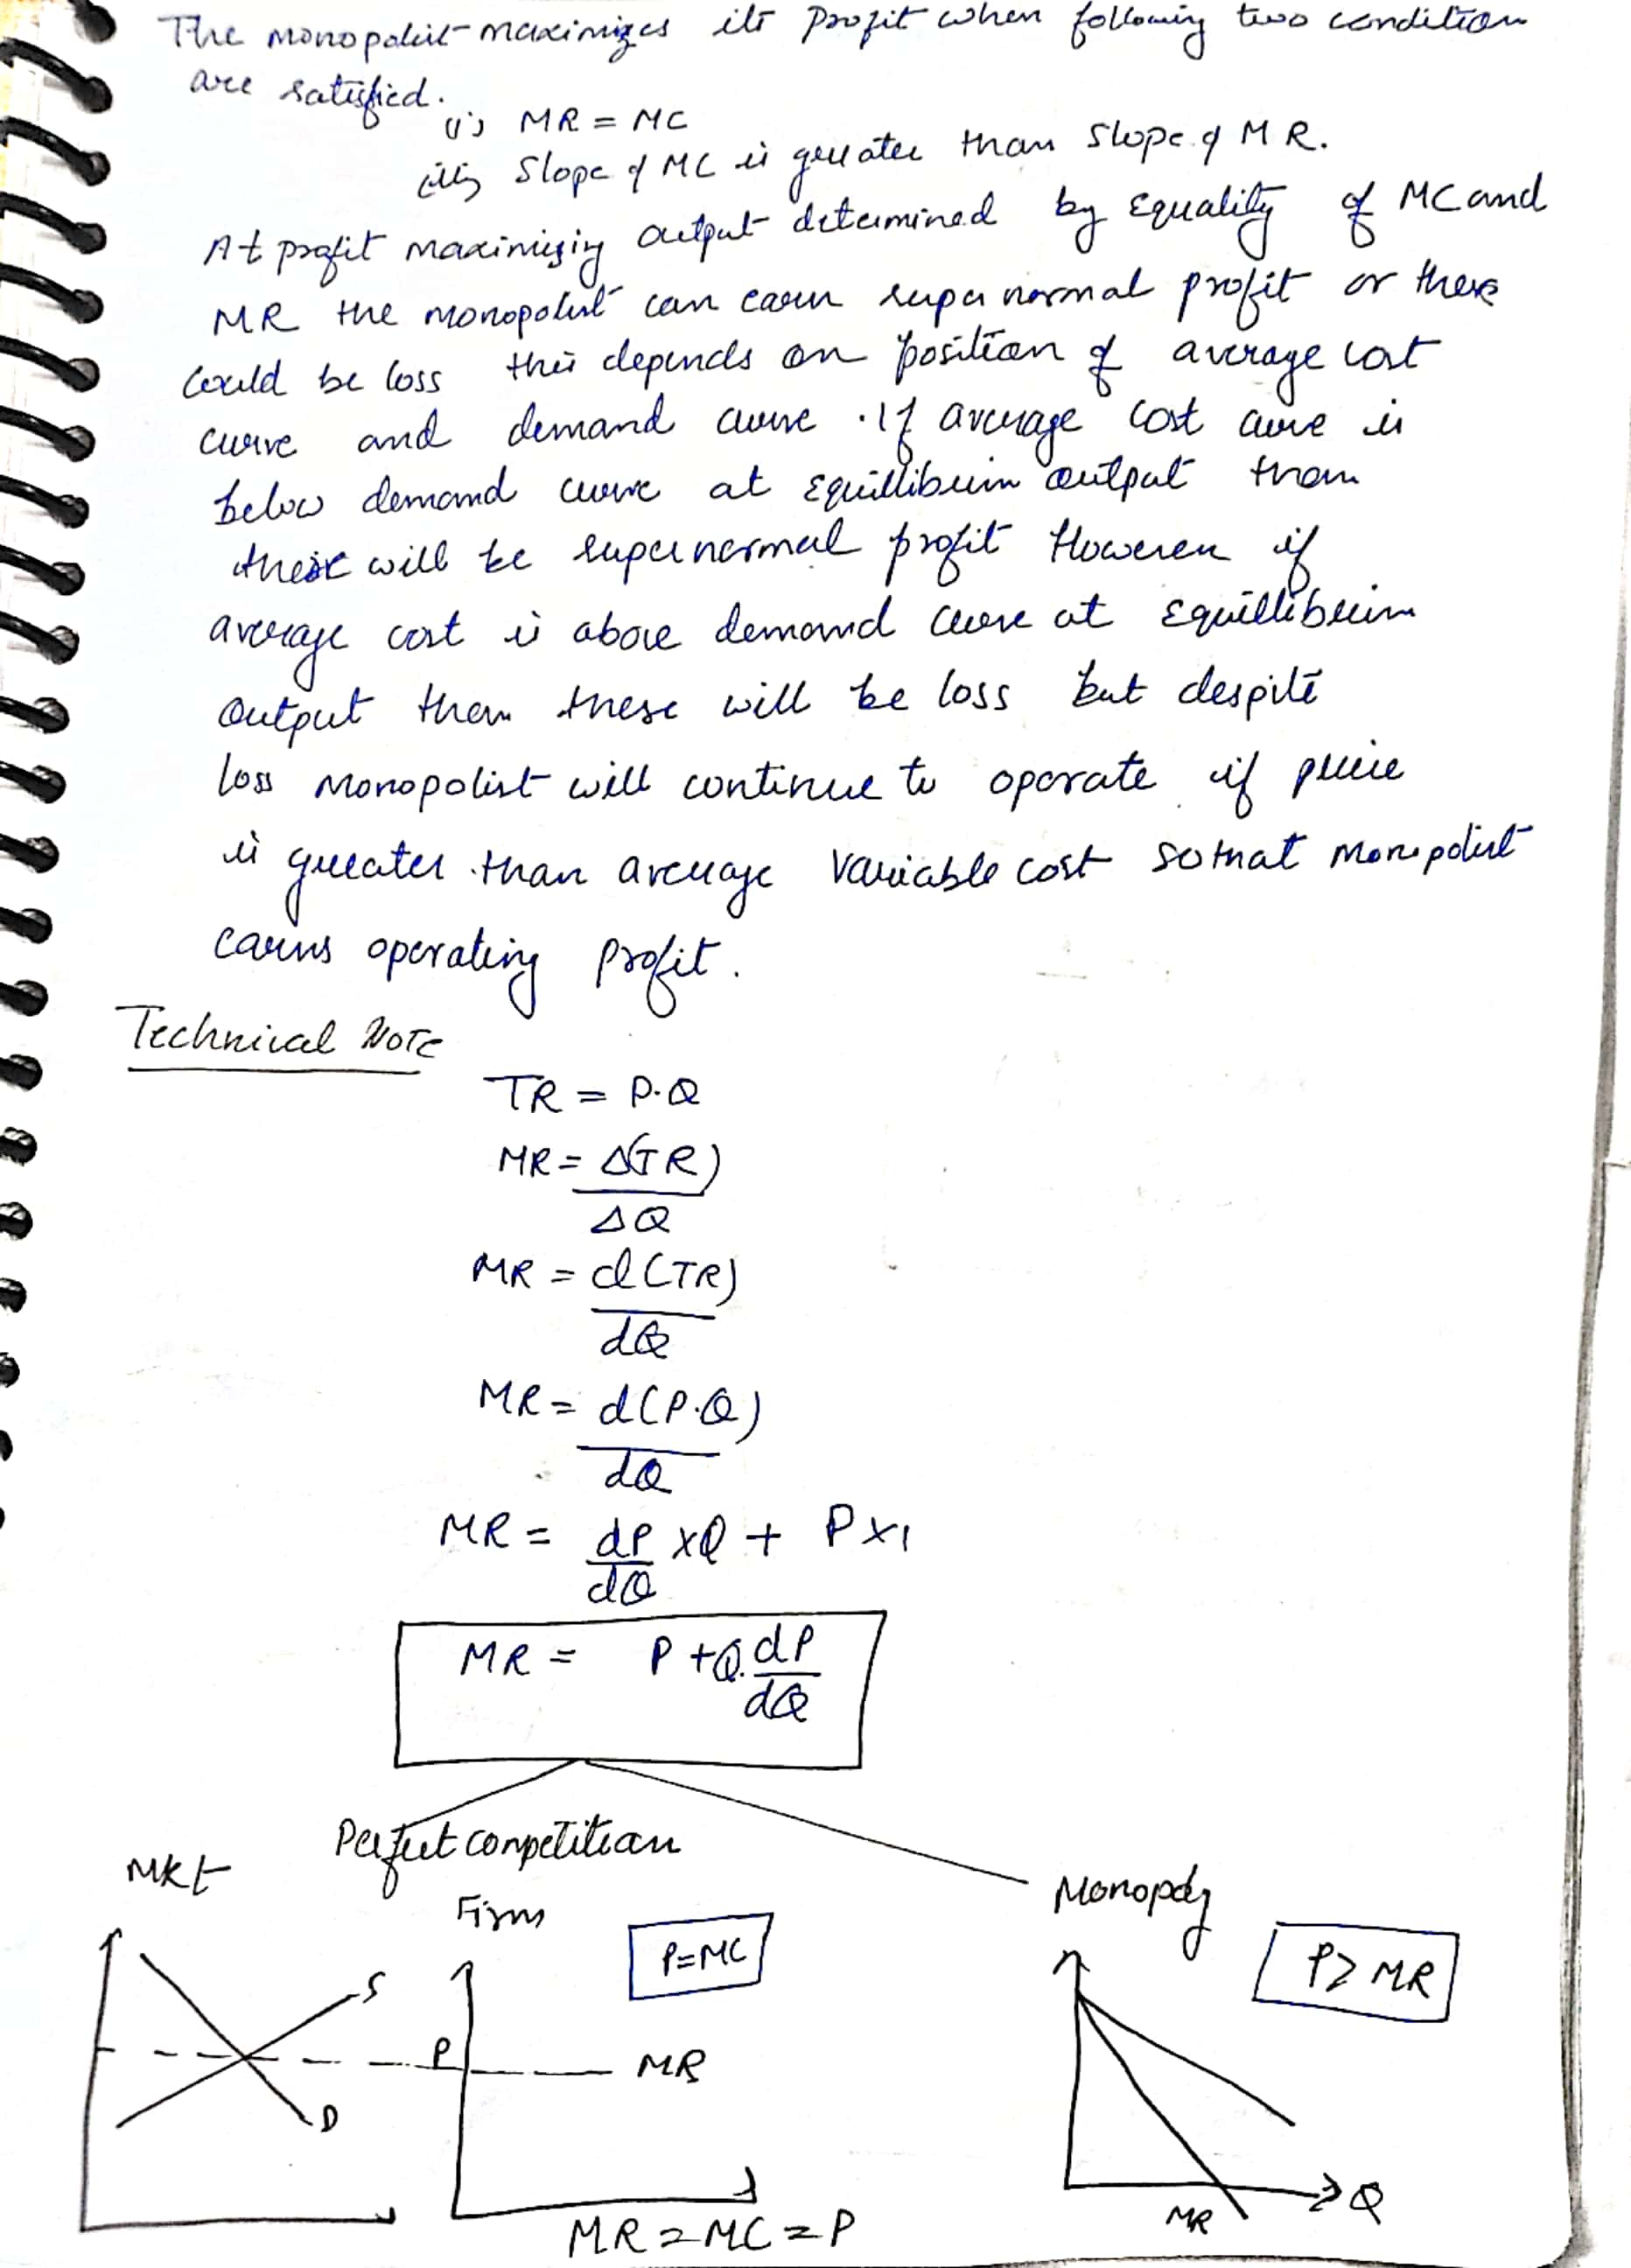 The monopolist maximizes its profit when following two condition
are satisfied.
(i) MR = MC
(ii) Slope of MC is greater than slope of MR.
At profit maximizing output determined by equality of MC and
MR the monopolist can earn super normal profit or there
could be loss this depends on position of average cost
curve and demand curve. If average cost curve is
below demand curve at equillibrium output than
there will be supernormal profit However if
average cost is above demand curve at equillibrium
output then these will be loss but despite
loss monopolist will continue to operate if price
is greater than average variable cost so that monopolist
earns operating profit.
Technical Note
TR = P.Q
MR = Δ(TR)
ΔQ
MR = d(TR)
dQ
MR = d(P.Q)
dQ
MR = dP/dQ x Q + P x 1
MR = P + Q. dP/dQ
Perfect competition
Monopoly
Mkt
Firm
P=MC
P> MR
S
D
P
MR
MR = MC = P
MR
Q